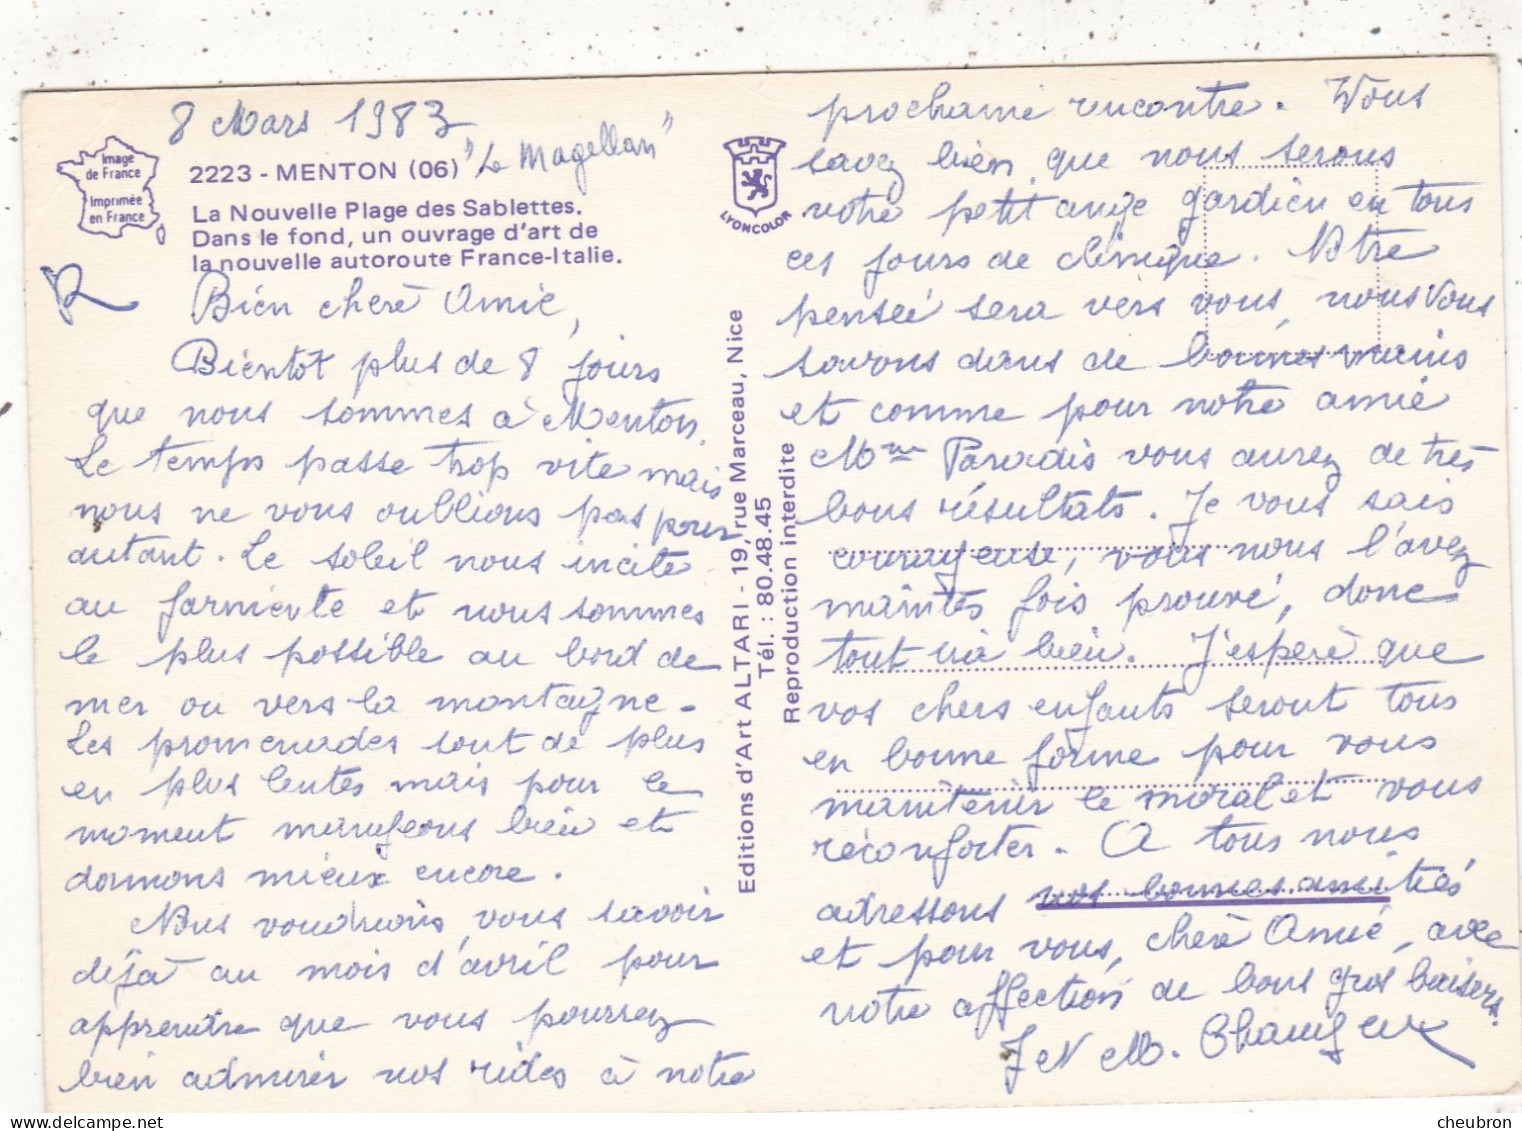 8 Mars 1983
"Le Magellan"
Image
de France
Imprimée
en France
2223 - MENTON (06)
La Nouvelle Plage des Sablettes.
Dans le fond, un ouvrage d'art de
la nouvelle autoroute France-Italie.
R
Bien chère Amie,
Bientôt plus de 8 jours
que nous sommes à Menton.
Le temps passe trop vite mais
nous ne vous oublions pas pour
autant. Le soleil nous incite
au farniente et nous sommes
le plus possible au bord de
mer ou vers la montagne.
Les promenades sont de plus
en plus lentes mais pour le
moment mangeons bien et
dormons mieux encore.
Nous voudrions vous savoir
déjà au mois d'avril pour
apprendre que vous pourrez
bien admirer nos rides à notre
LYONCOLOR
Editions d'Art ALTARI - 19, rue Marceau, Nice
Tél. : 80.48.45
Reproduction interdite
prochaine rencontre. Vous
savez bien que nous serons
votre petit ange gardien en tous
ces jours de clinique. Notre
pensée sera vers vous, nous vous
savons dans de bonnes mains
et comme pour notre amie
Mme Paradis vous aurez de très
bons résultats. Je vous sais
courageuse, vous nous l'avez
maintes fois prouvé, donc
tout ira bien. J'espère que
vos chers enfants seront tous
en bonne forme pour vous
maintenir le moral et vous
réconforter. A tous nous
adressons nos bonnes amitiés
et pour vous, chère Amie, avec
notre affection de bons gros baisers.
J et M. Changeux
cheubron.com